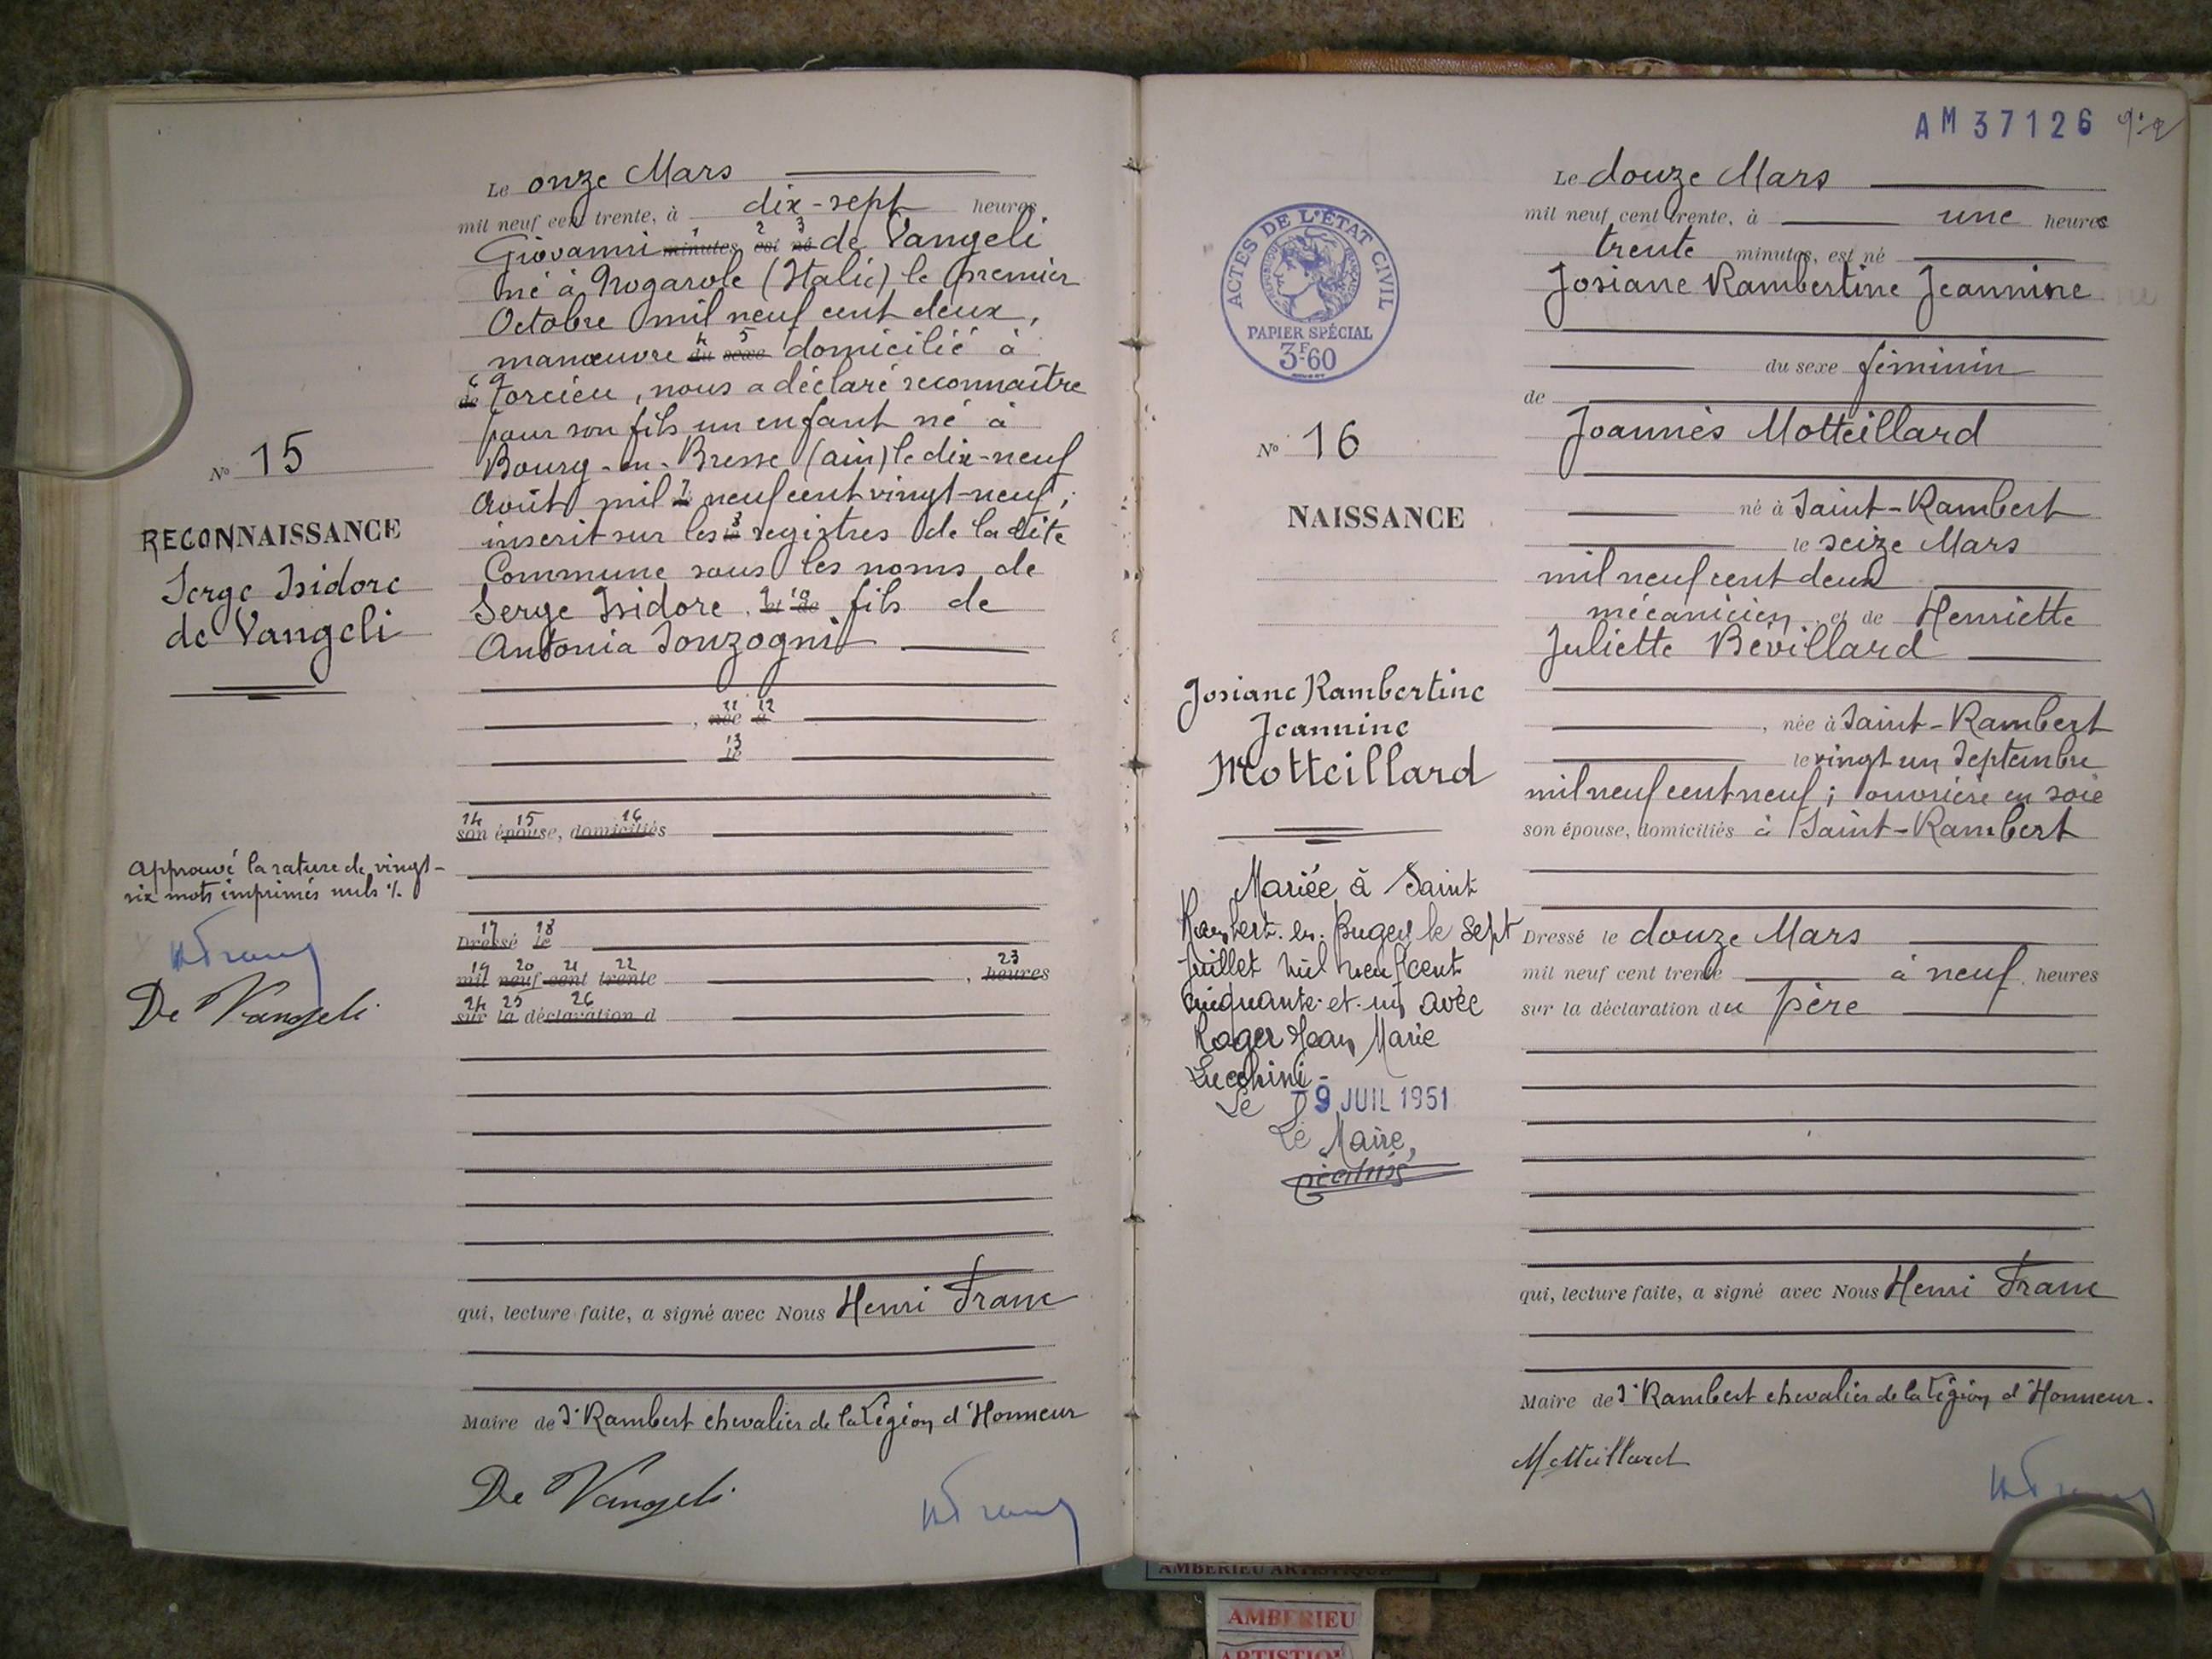 Le onze Mars
mil neuf cent trente, à dix-sept heures
Giovanni minutes, est né de Vangeli
1 2 3
né à Nogarole (Italie) le premier
Octobre mil neuf cent deux,
manœuvre du sexe domicilié à
4 5
de Torcieu, nous a déclaré reconnaître
6
pour son fils un enfant né à
Bourg-en-Bresse (ain) le dix-neuf
Août mil neuf cent vingt-neuf;
7
inscrit sur les registres de la dite
8
Commune sous les noms de
Serge Isidore, et de fils de
9 10
Antonia Sonzogni
, née à
11 12
le
13
14 15 16
son épouse, domiciliés
17 18
Dressé le
19 20 21 22 23
mil neuf cent trente , heures
24 25 26
sur la déclaration d
qui, lecture faite, a signé avec Nous Henri Franc
Maire de St Rambert chevalier de la Légion d'Honneur
De Vangeli
HFranc
No 15
RECONNAISSANCE
Serge Isidore
de Vangeli
Approuvé la rature de vingt-
six mots imprimés nuls %.
HFranc
De Vangeli
AM 37126
ACTES DE L'ÉTAT CIVIL
RÉPUBLIQUE FRANÇAISE
PAPIER SPÉCIAL
3F60
No 16
NAISSANCE
Josiane Rambertine
Jeannine
Motteillard
Mariée à Saint
Rambert-en-Bugey le sept
Juillet mil neuf cent
cinquante-et-un avec
Roger Jean Marie
Lucchini -
Le -9 JUIL 1951
Le Maire,
Le douze Mars
mil neuf cent trente, à une heures
trente minutes, est né
Josiane Rambertine Jeannine
du sexe féminin
de
Joannès Motteillard
né à Saint-Rambert
le seize Mars
mil neuf cent deux
mécanicien, et de Henriette
Juliette Bevillard
, née à Saint-Rambert
le vingt un Septembre
mil neuf cent neuf; ouvrière en soie
son épouse, domiciliés à Saint-Rambert
Dressé le douze Mars
mil neuf cent trente à neuf heures
sur la déclaration du père
qui, lecture faite, a signé avec Nous Henri Franc
Maire de St Rambert chevalier de la Légion d'Honneur.
Motteillard
HFranc
AMBERIEU ARTISTIQUE
AMBERIEU
ARTISTIQU